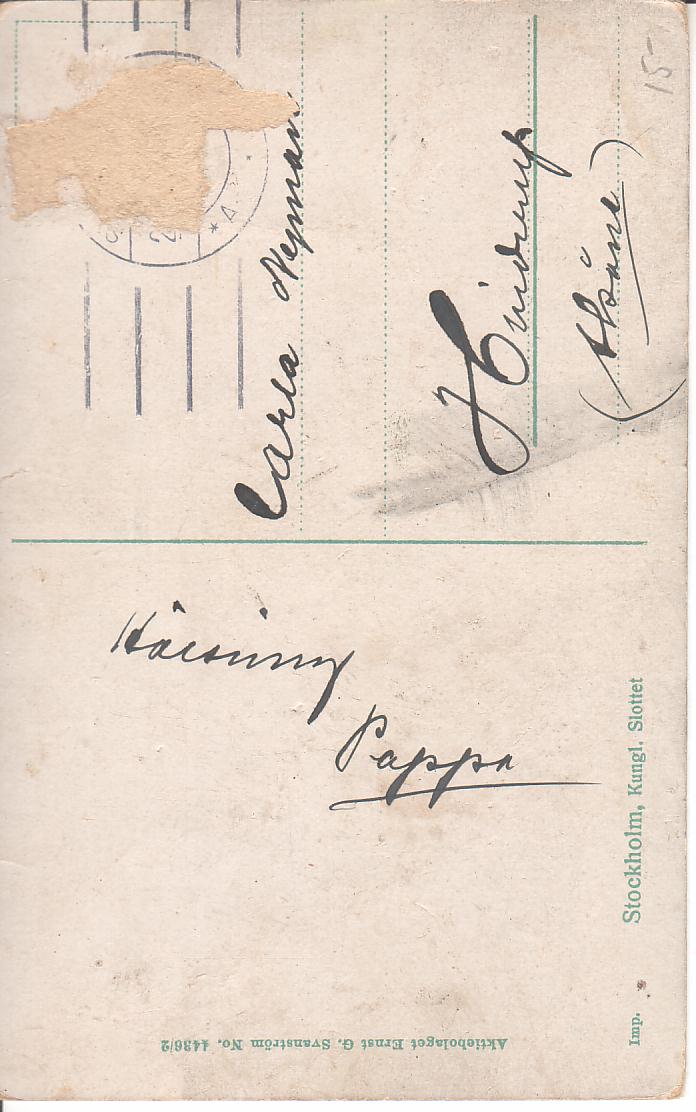 Hälsning
Pappa
Carla Nyman
Hvidrup
(Skåne)
15-
Imp. Stockholm, Kungl. Slottet
Aktiebolaget Ernst G. Svanström No. 4436/2